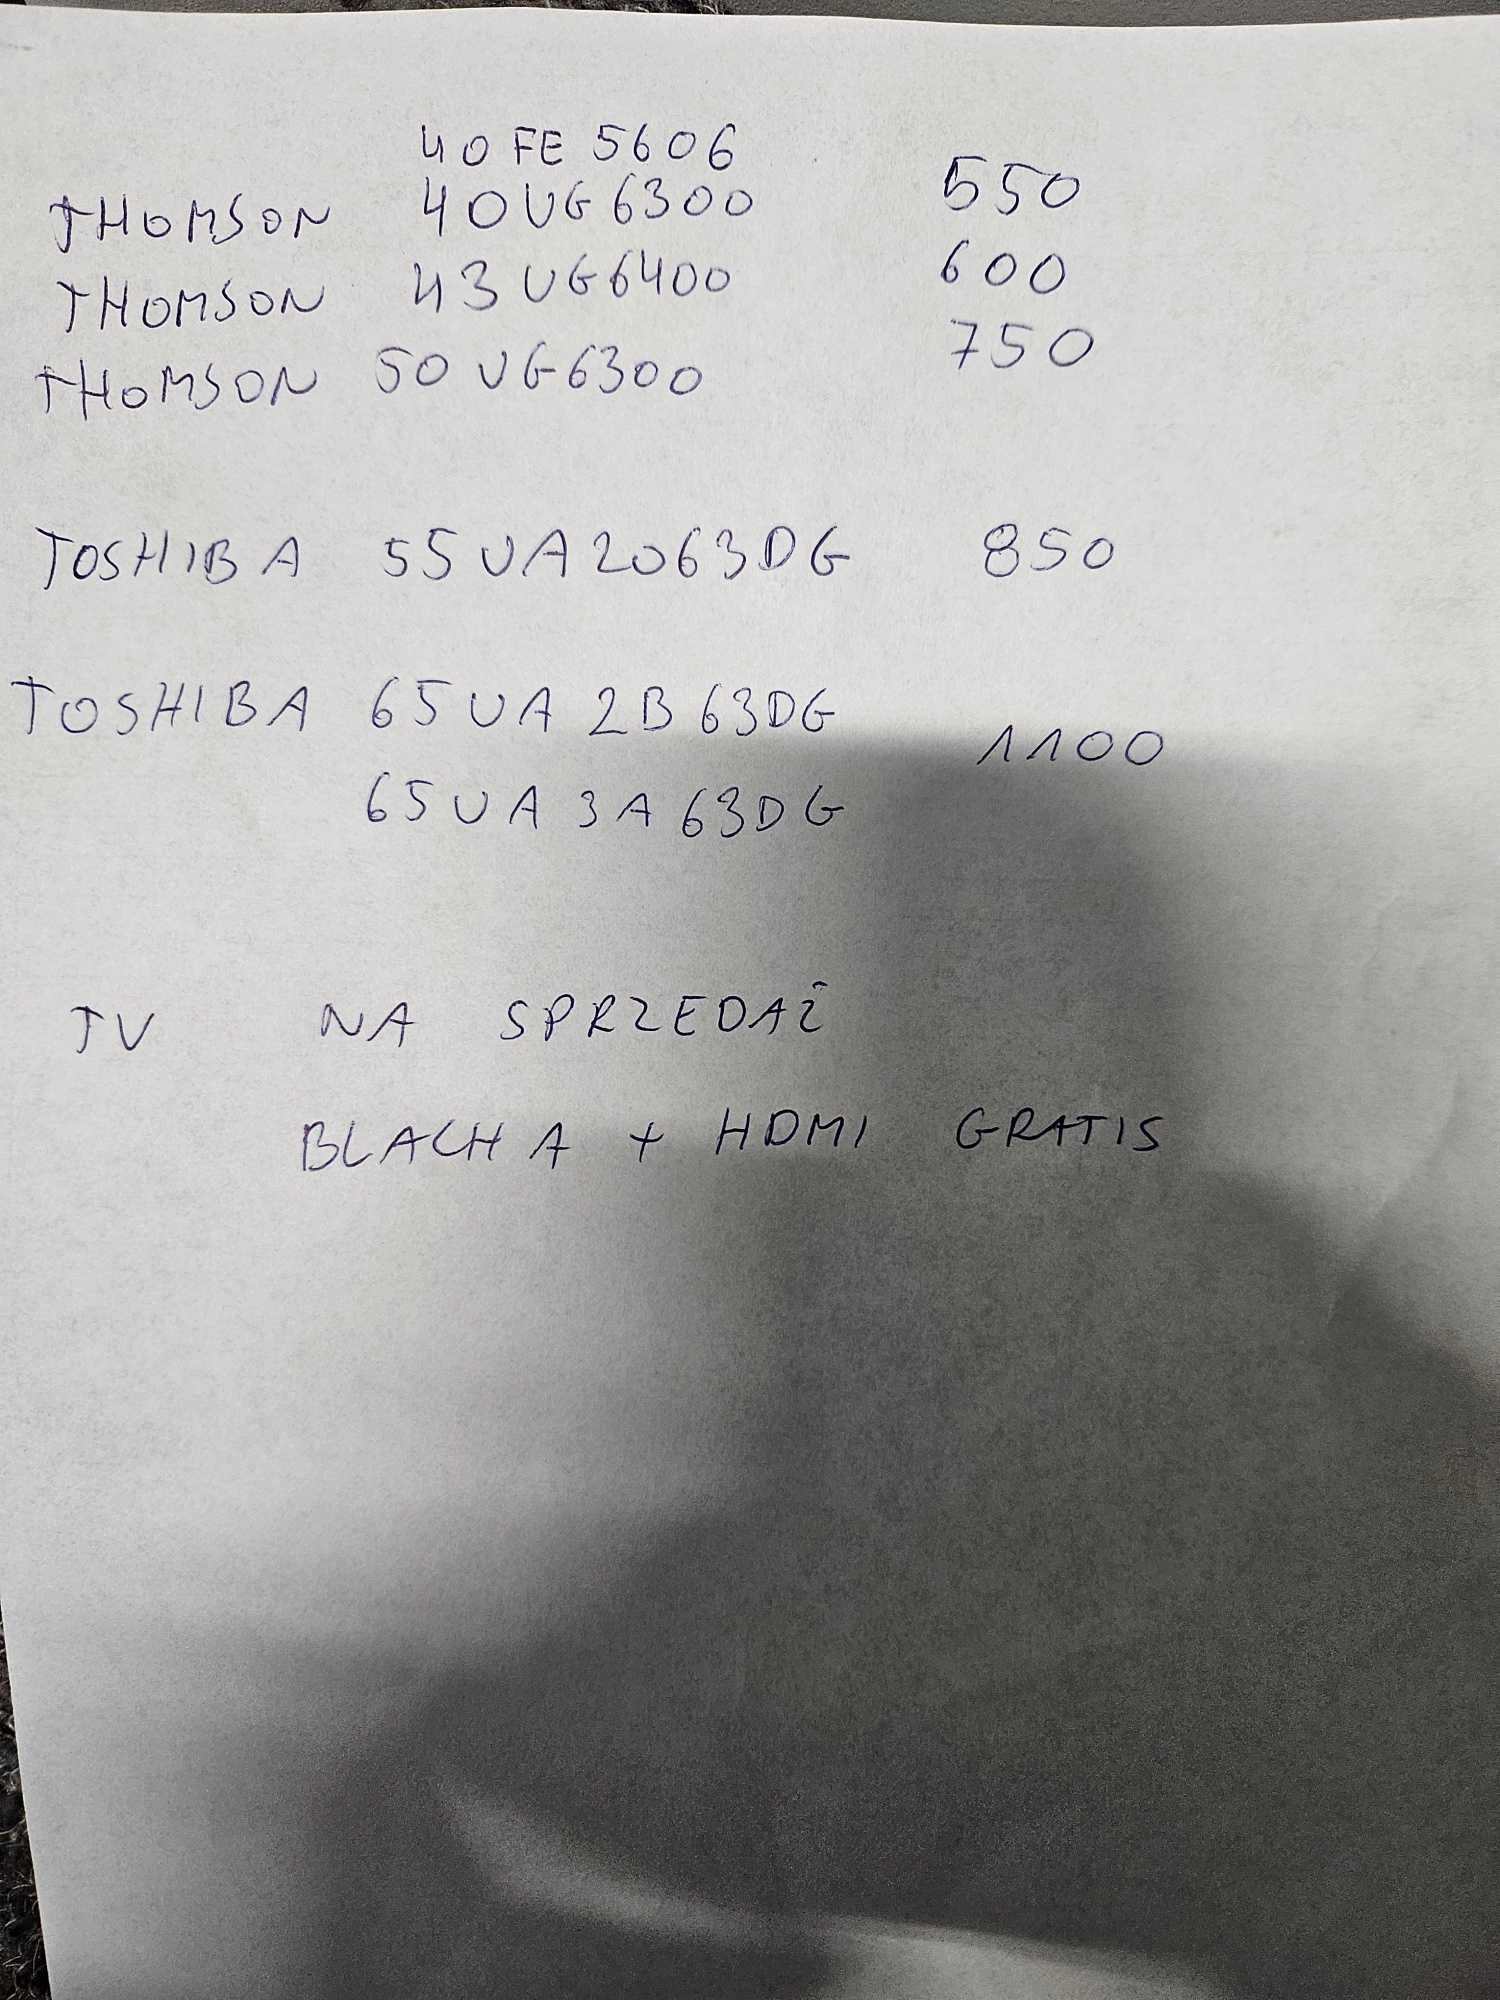 40 FE 5606
THOMSON 40UG6300 550
THOMSON 43UG6400 600
THOMSON 50UG6300 750
TOSHIBA 55UA2063DG 850
TOSHIBA 65UA2B63DG 1100
65UA3A63DG
TV NA SPRZEDAŻ
BLACHA + HDMI GRATIS